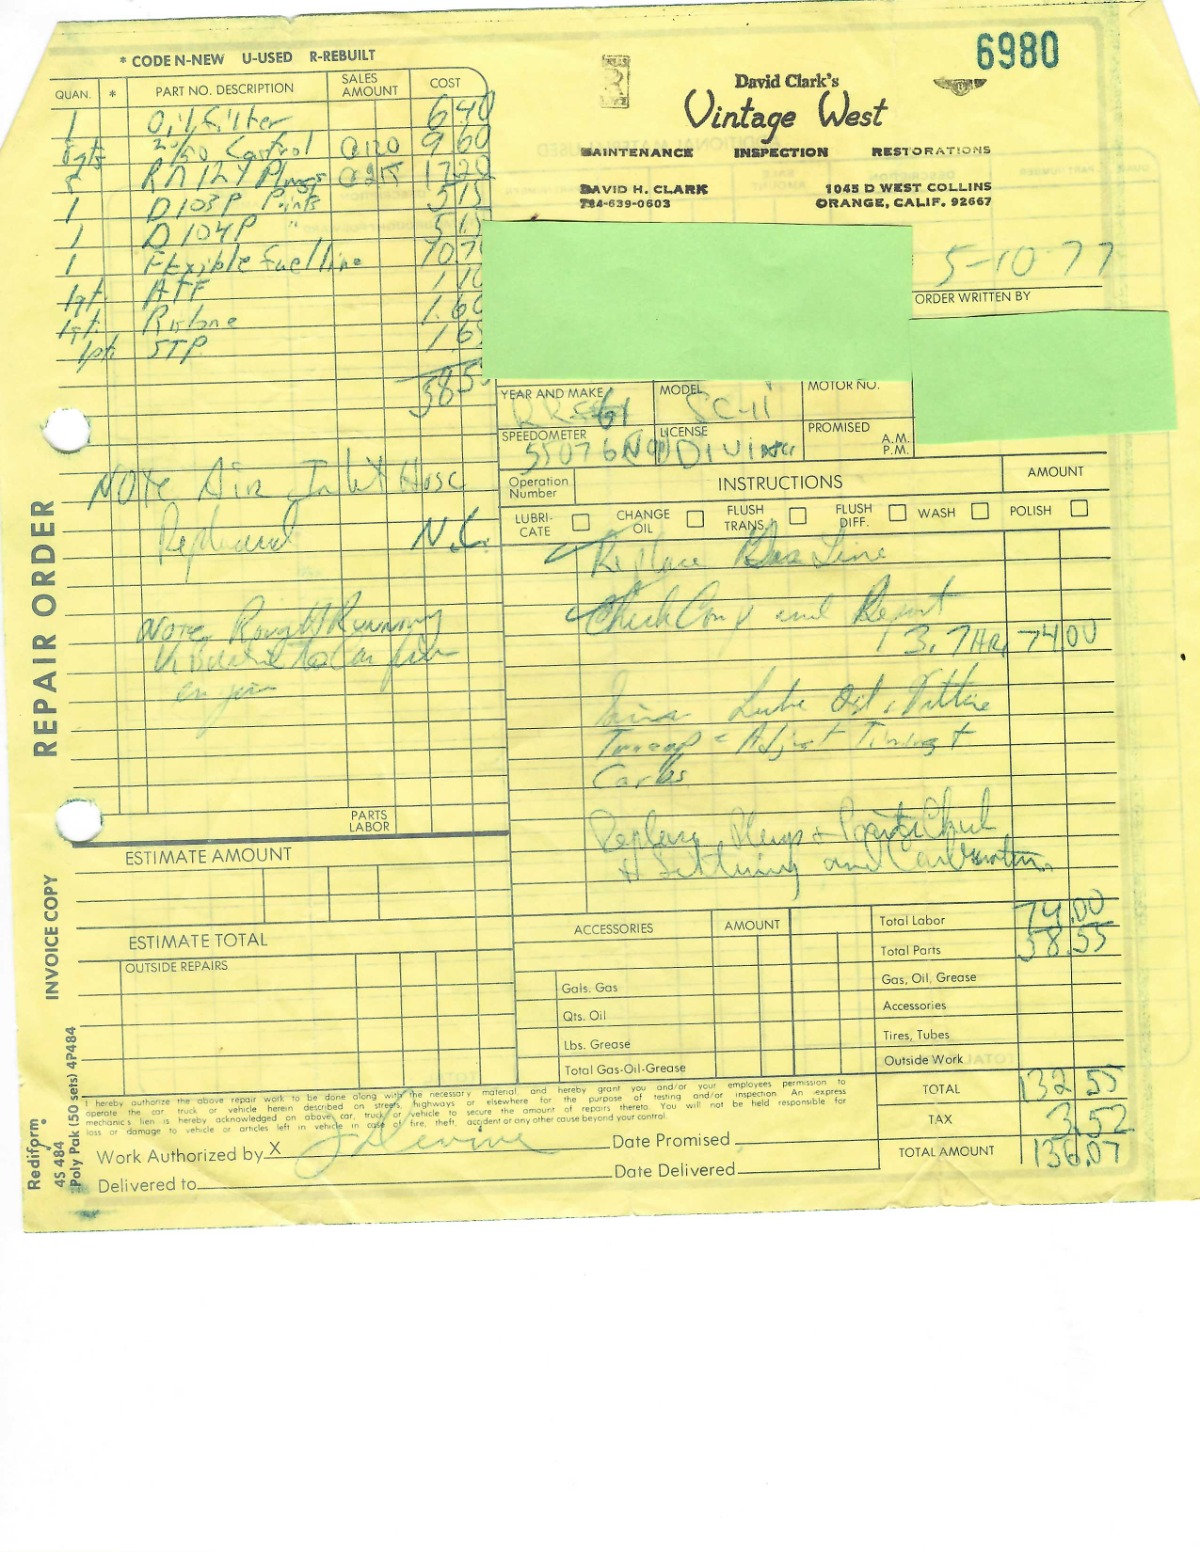 6980
* CODE N-NEW U-USED R-REBUILT
QUAN. * PART NO. DESCRIPTION SALES AMOUNT COST
1 Oil Filter 6 40
8 qts 20/50 Castrol @ 1 20 9 60
8 RN12Y Plugs @ 2 15 17 20
1 D103P Points 5 15
1 D104P " 5 15
1 Flexible fuel line 10.7
1qt. ATF 1 10
1qt. Rislone 1.60
1pt. STP 1 65
58 5
NOTE Air Inlet Hose
Replaced N.C.
NOTE Rough Running
en gin
PARTS
LABOR
ESTIMATE AMOUNT
ESTIMATE TOTAL
OUTSIDE REPAIRS
REPAIR ORDER
INVOICE COPY
Rediform
4S 484
Poly Pak (50 sets) 4P484
David Clark's
Vintage West
MAINTENANCE INSPECTION RESTORATIONS
DAVID H. CLARK 1045 D WEST COLLINS
714-639-0603 ORANGE, CALIF. 92667
5-10-77
ORDER WRITTEN BY
YEAR AND MAKE MODEL MOTOR NO.
RR 61 SC-11
SPEEDOMETER LICENSE PROMISED A.M.
P.M.
55076
Operation Number INSTRUCTIONS AMOUNT
LUBRI-CATE CHANGE OIL FLUSH TRANS. FLUSH DIFF. WASH POLISH
Replace Gas Line
Check Comp and Report
3.7 HR. 74.00
Lube Oil & Filter
Tuneup = Adjust Timing +
Carbs
Replace Plugs + Points Check
and Carburetors
ACCESSORIES AMOUNT
Gals. Gas
Qts. Oil
Lbs. Grease
Total Gas-Oil-Grease
Total Labor 74.00
Total Parts 58.55
Gas, Oil, Grease
Accessories
Tires, Tubes
Outside Work
TOTAL 132 55
TAX 3.52
TOTAL AMOUNT 136.07
I hereby authorize the above repair work to be done along with the necessary material, and hereby grant you and/or your employees permission to
operate the car, truck or vehicle herein described on streets, highways or elsewhere for the purpose of testing and/or inspection. An express
mechanic's lien is hereby acknowledged on above car, truck or vehicle to secure the amount of repairs thereto. You will not be held responsible for
loss or damage to vehicle or articles left in vehicle in case of fire, theft, accident or any other cause beyond your control.
Work Authorized by X Date Promised
Delivered to Date Delivered